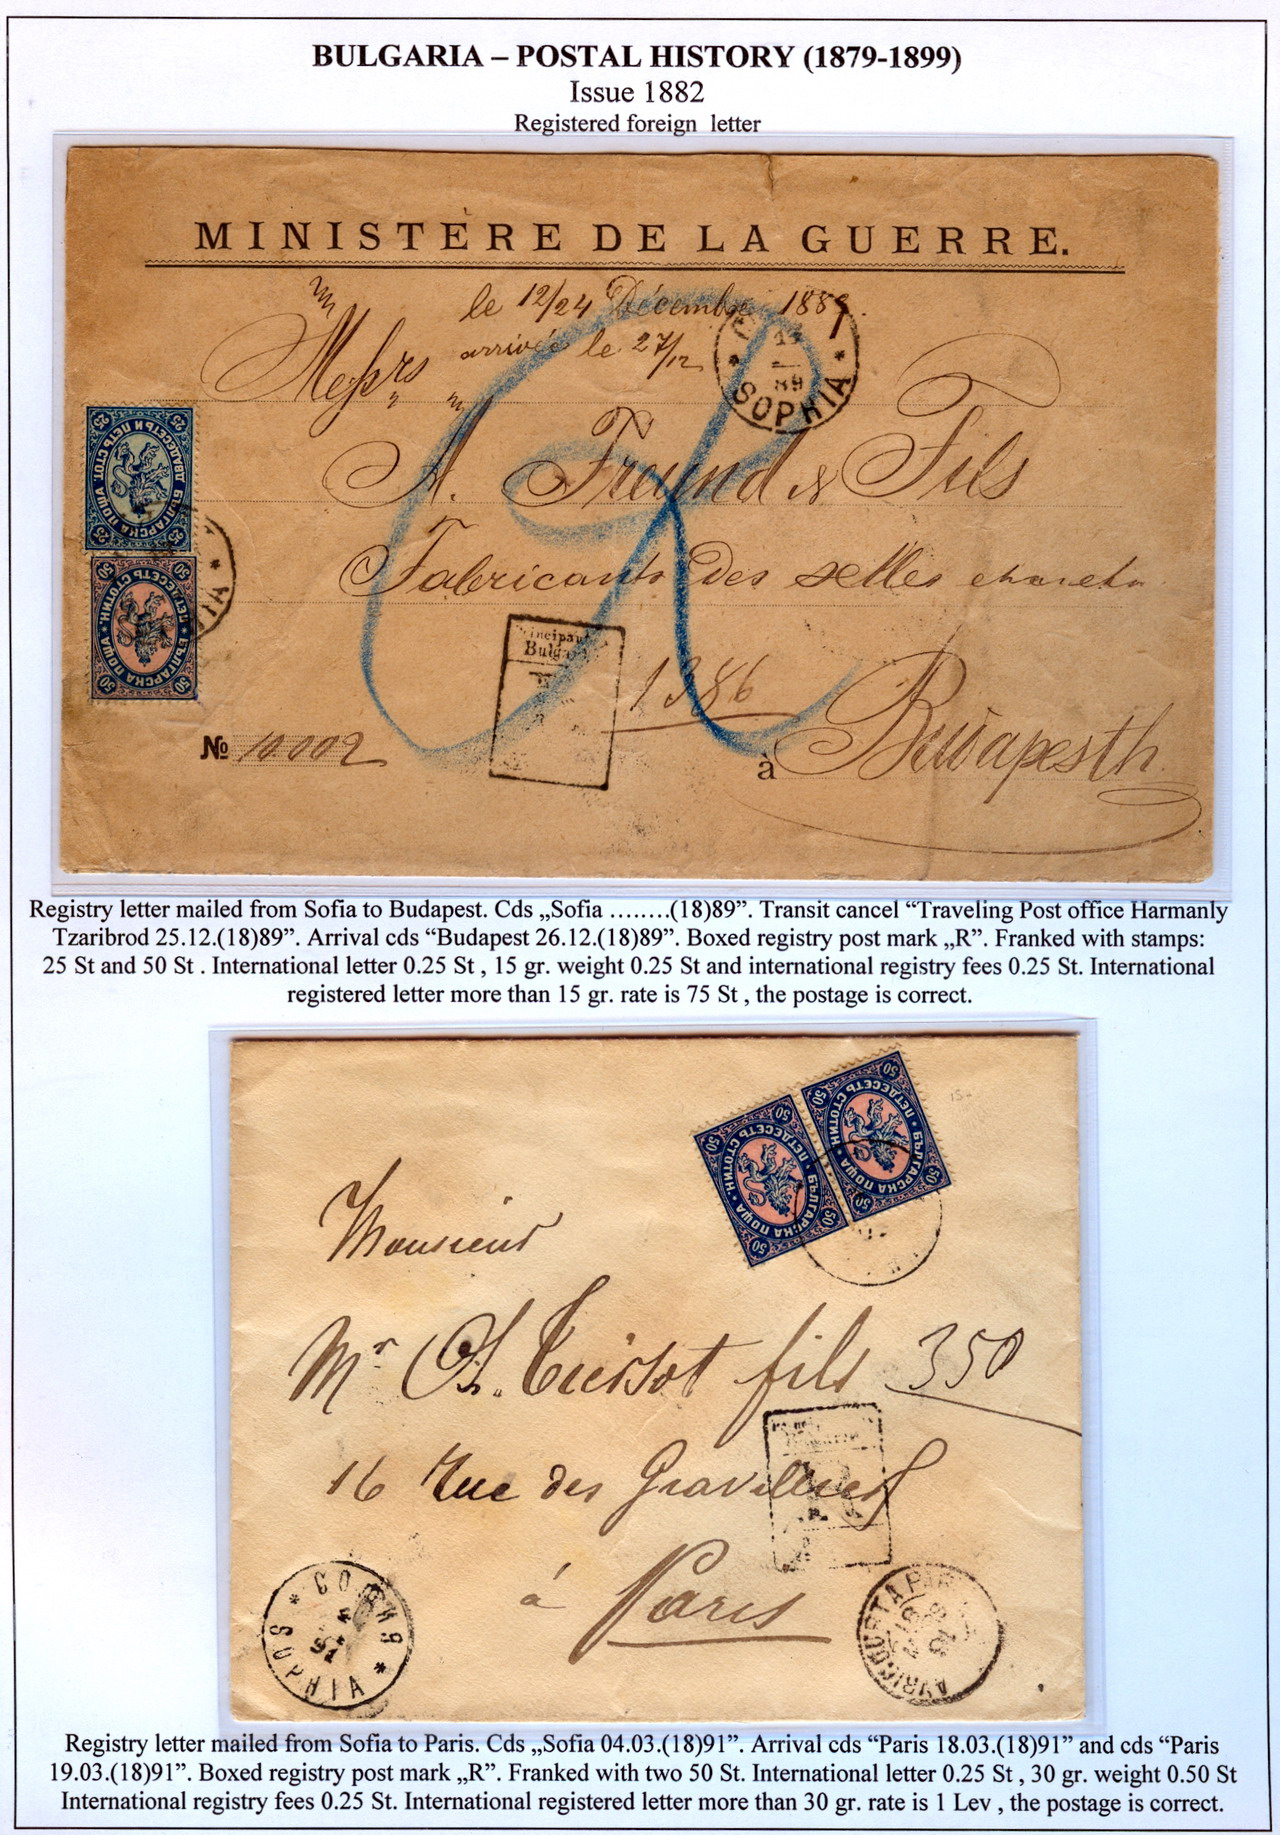 BULGARIA – POSTAL HISTORY (1879-1899)
Issue 1882
Registered foreign letter
MINISTÈRE DE LA GUERRE.
le 12/24 Décembre 1889.
arrivée le 27/12
Messrs
SOPHIA
89
A. Freund & Fils
Fabricants des selles
R
25 БЪЛГАРСКА ПОЩА 25 ДВАДЕСЕТЬ И ПЕТЬ СТОТ.
50 БЪЛГАРСКА ПОЩА 50 ПЕТДЕСЕТЬ СТОТИН.
Bulgar
1386
№ 10002
à Budapesth
Registry letter mailed from Sofia to Budapest. Cds „Sofia ……..(18)89”. Transit cancel “Traveling Post office Harmanly
Tzaribrod 25.12.(18)89”. Arrival cds “Budapest 26.12.(18)89”. Boxed registry post mark „R”. Franked with stamps:
25 St and 50 St . International letter 0.25 St , 15 gr. weight 0.25 St and international registry fees 0.25 St. International
registered letter more than 15 gr. rate is 75 St , the postage is correct.
50 БЪЛГАРСКА ПОЩА 50 ПЕТДЕСЕТЬ СТОТИН.
50 БЪЛГАРСКА ПОЩА 50 ПЕТДЕСЕТЬ СТОТИН.
Monsieur
Mr A. Tuissot fils 350
16 Rue des Gravilliers
R
à Paris
СОФИЯ
4
91
SOPHIA
AVRICOURT A PARIS
Registry letter mailed from Sofia to Paris. Cds „Sofia 04.03.(18)91”. Arrival cds “Paris 18.03.(18)91” and cds “Paris
19.03.(18)91”. Boxed registry post mark „R”. Franked with two 50 St. International letter 0.25 St , 30 gr. weight 0.50 St
International registry fees 0.25 St. International registered letter more than 30 gr. rate is 1 Lev , the postage is correct.